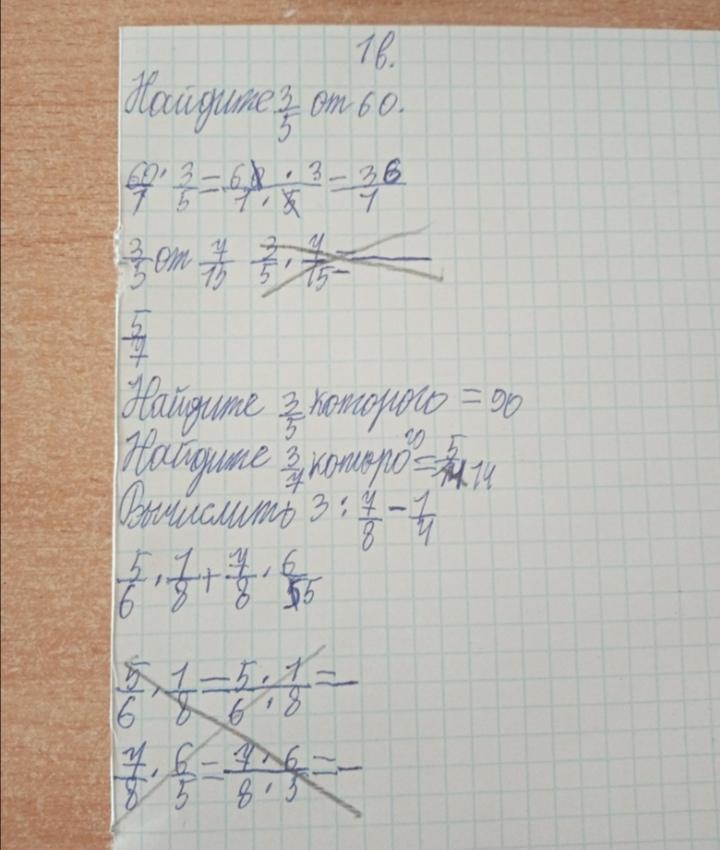 1в.
Найдите 3/5 от 60.
60/1 · 3/5 = 60 · 3 / 1 · 5 = 36/1
3/5 от 7/15 3/5 · 7/15 =
5/7
Найдите 3/5 которого = 90
Найдите 3/7 которого = 5/14
Вычислить 3 : 7/8 - 1/4
5/6 · 1/8 + 7/8 · 6/5
5/6 · 1/8 = 5 · 1 / 6 · 8 = -
7/8 · 6/5 = 7 · 6 / 8 · 5 = -